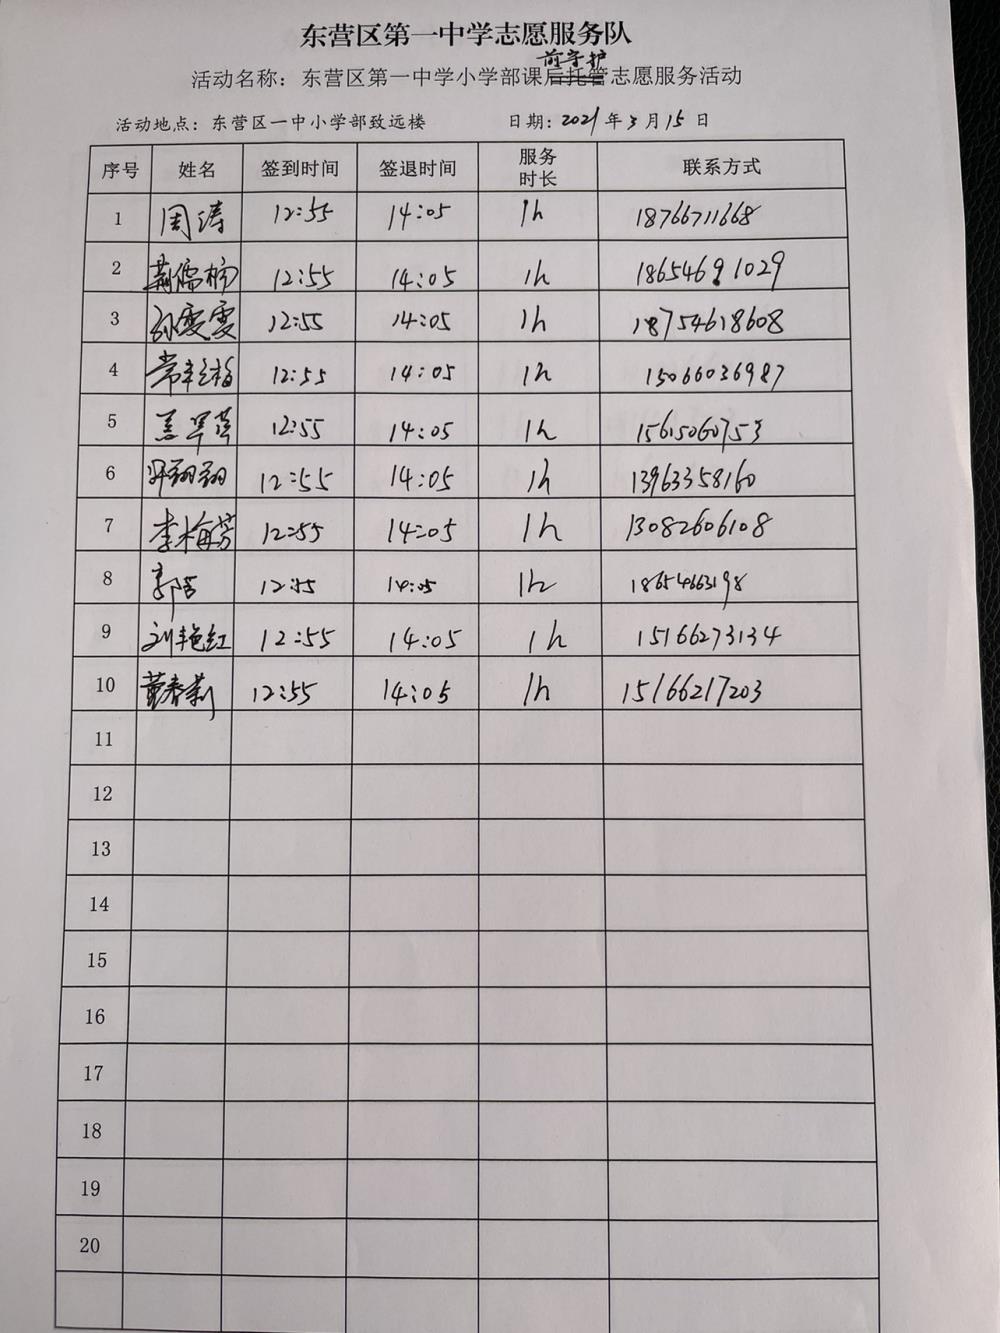 东营区第一中学志愿服务队
前守护
活动名称：东营区第一中学小学部课后托管志愿服务活动
活动地点：东营区一中小学部致远楼 日期：2021年3月15日
序号 姓名 签到时间 签退时间 服务时长 联系方式
1 周涛 12:55 14:05 1h 18766711668
2 荆儒楠 12:55 14:05 1h 18654691029
3 孙雯雯 12:55 14:05 1h 18754618608
4 12:55 14:05 1h 15066036987
5 12:55 14:05 1h 15615060753
6 12:55 14:05 1h 13963358160
7 李梅芳 12:55 14:05 1h 13082606108
8 郭洁 12:55 14:05 1h 18654663198
9 刘艳红 12:55 14:05 1h 15166273134
10 董春莉 12:55 14:05 1h 15166217203
11
12
13
14
15
16
17
18
19
20